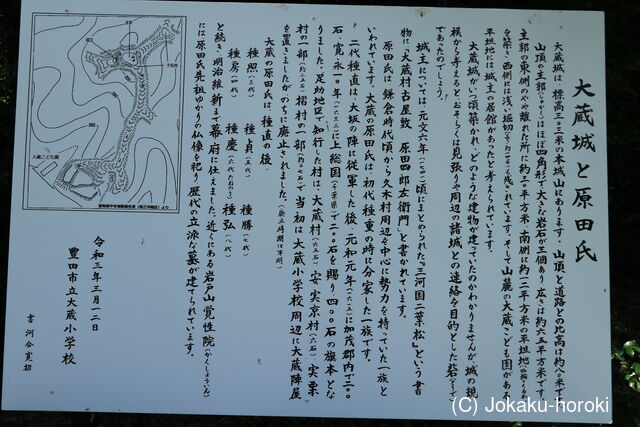 大蔵城と原田氏
大蔵城は、標高三三二米の本城山にあります。山頂と道路との比高は約八米です。
山頂の主郭(しゅかく)はほぼ四角形で、大きな岩石が三個あり、広さは約六五平方米です。
主郭の東側のやや離れた所に約三〇平方米、南側に約一二平方米の平坦地
を築き、西側には浅い堀切も残されています。そして山麓の大蔵こども園がある
平坦地には城主の居館があったと考えられています。
大蔵城がいつ頃築かれ、どのような建物が建っていたのかわかりませんが、城の規
模から考えると、おそらくは見張りや周辺の諸城との連絡を目的とした砦(とりで)
であったのでしょう。
城主については、元文六年(一七四一)頃にまとめられた『三河国二葉松』という書
物に「大蔵村古屋敷 原田四郎左衛門」と書かれています。
原田氏は、鎌倉時代頃から久木村周辺を中心に勢力を持っていた一族と
いわれています。大蔵の原田氏は、初代種重の時に分家した一族です。
二代種直は、大坂の陣に従軍した後、元和元年(一六一五)に加茂郡内で二〇〇
石、寛永一〇年(一六三三)に上総国(千葉県)で二〇〇石を賜り、四〇〇石の旗本とな
りました。足助地区で知行した村は、大蔵村(六五石)、安実京村(六石)、実栗
村の一部、摺村の一部で、当初は大蔵小学校周辺に大蔵陣屋
を置きましたが、のちに廃止されました。(廃止時期は不明)
大蔵の原田氏は、種直の後、
種照(三代) 種貞(五代) 種勝(七代)
種房(四代) 種慶(六代たねのり) 種弘(八代)
と続き、明治維新まで幕府に仕えました。近くにある岩戸山覚性院(かくしょういん)
には原田氏先祖ゆかりの仏像を祀り、歴代の立派な墓が建てられています。
令和三年三月一二日
豊田市立大蔵小学校
書 河合寛
大蔵こども園
(C) Jokaku-horoki